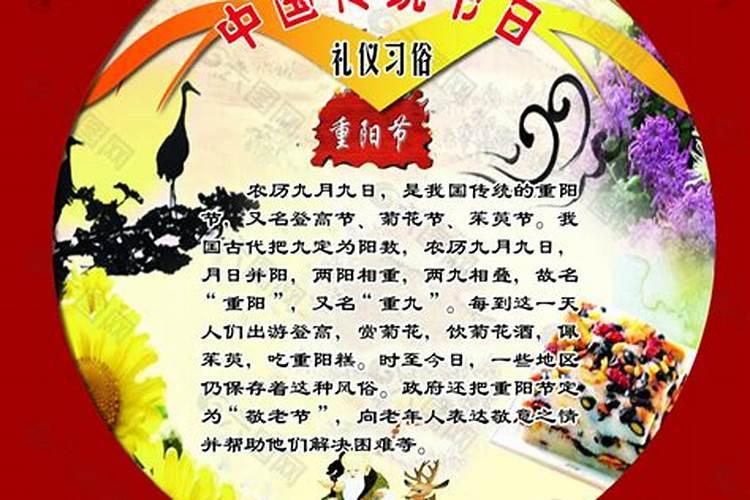 中国传统节日
礼仪习俗
重阳节
农历九月九日，是我国传统的重阳
节，又名登高节、菊花节、茱萸节。我
国古代把九定为阳数，农历九月九日，
月日并阳，两阳相重，两九相叠，故名
“重阳”，又名“重九”。每到这一天
人们出游登高，赏菊花，饮菊花酒，佩
茱萸，吃重阳糕。时至今日，一些地区
仍保存着这种风俗。政府还把重阳节定
为“敬老节”，向老年人表达敬意之情
并帮助他们解决困难等。